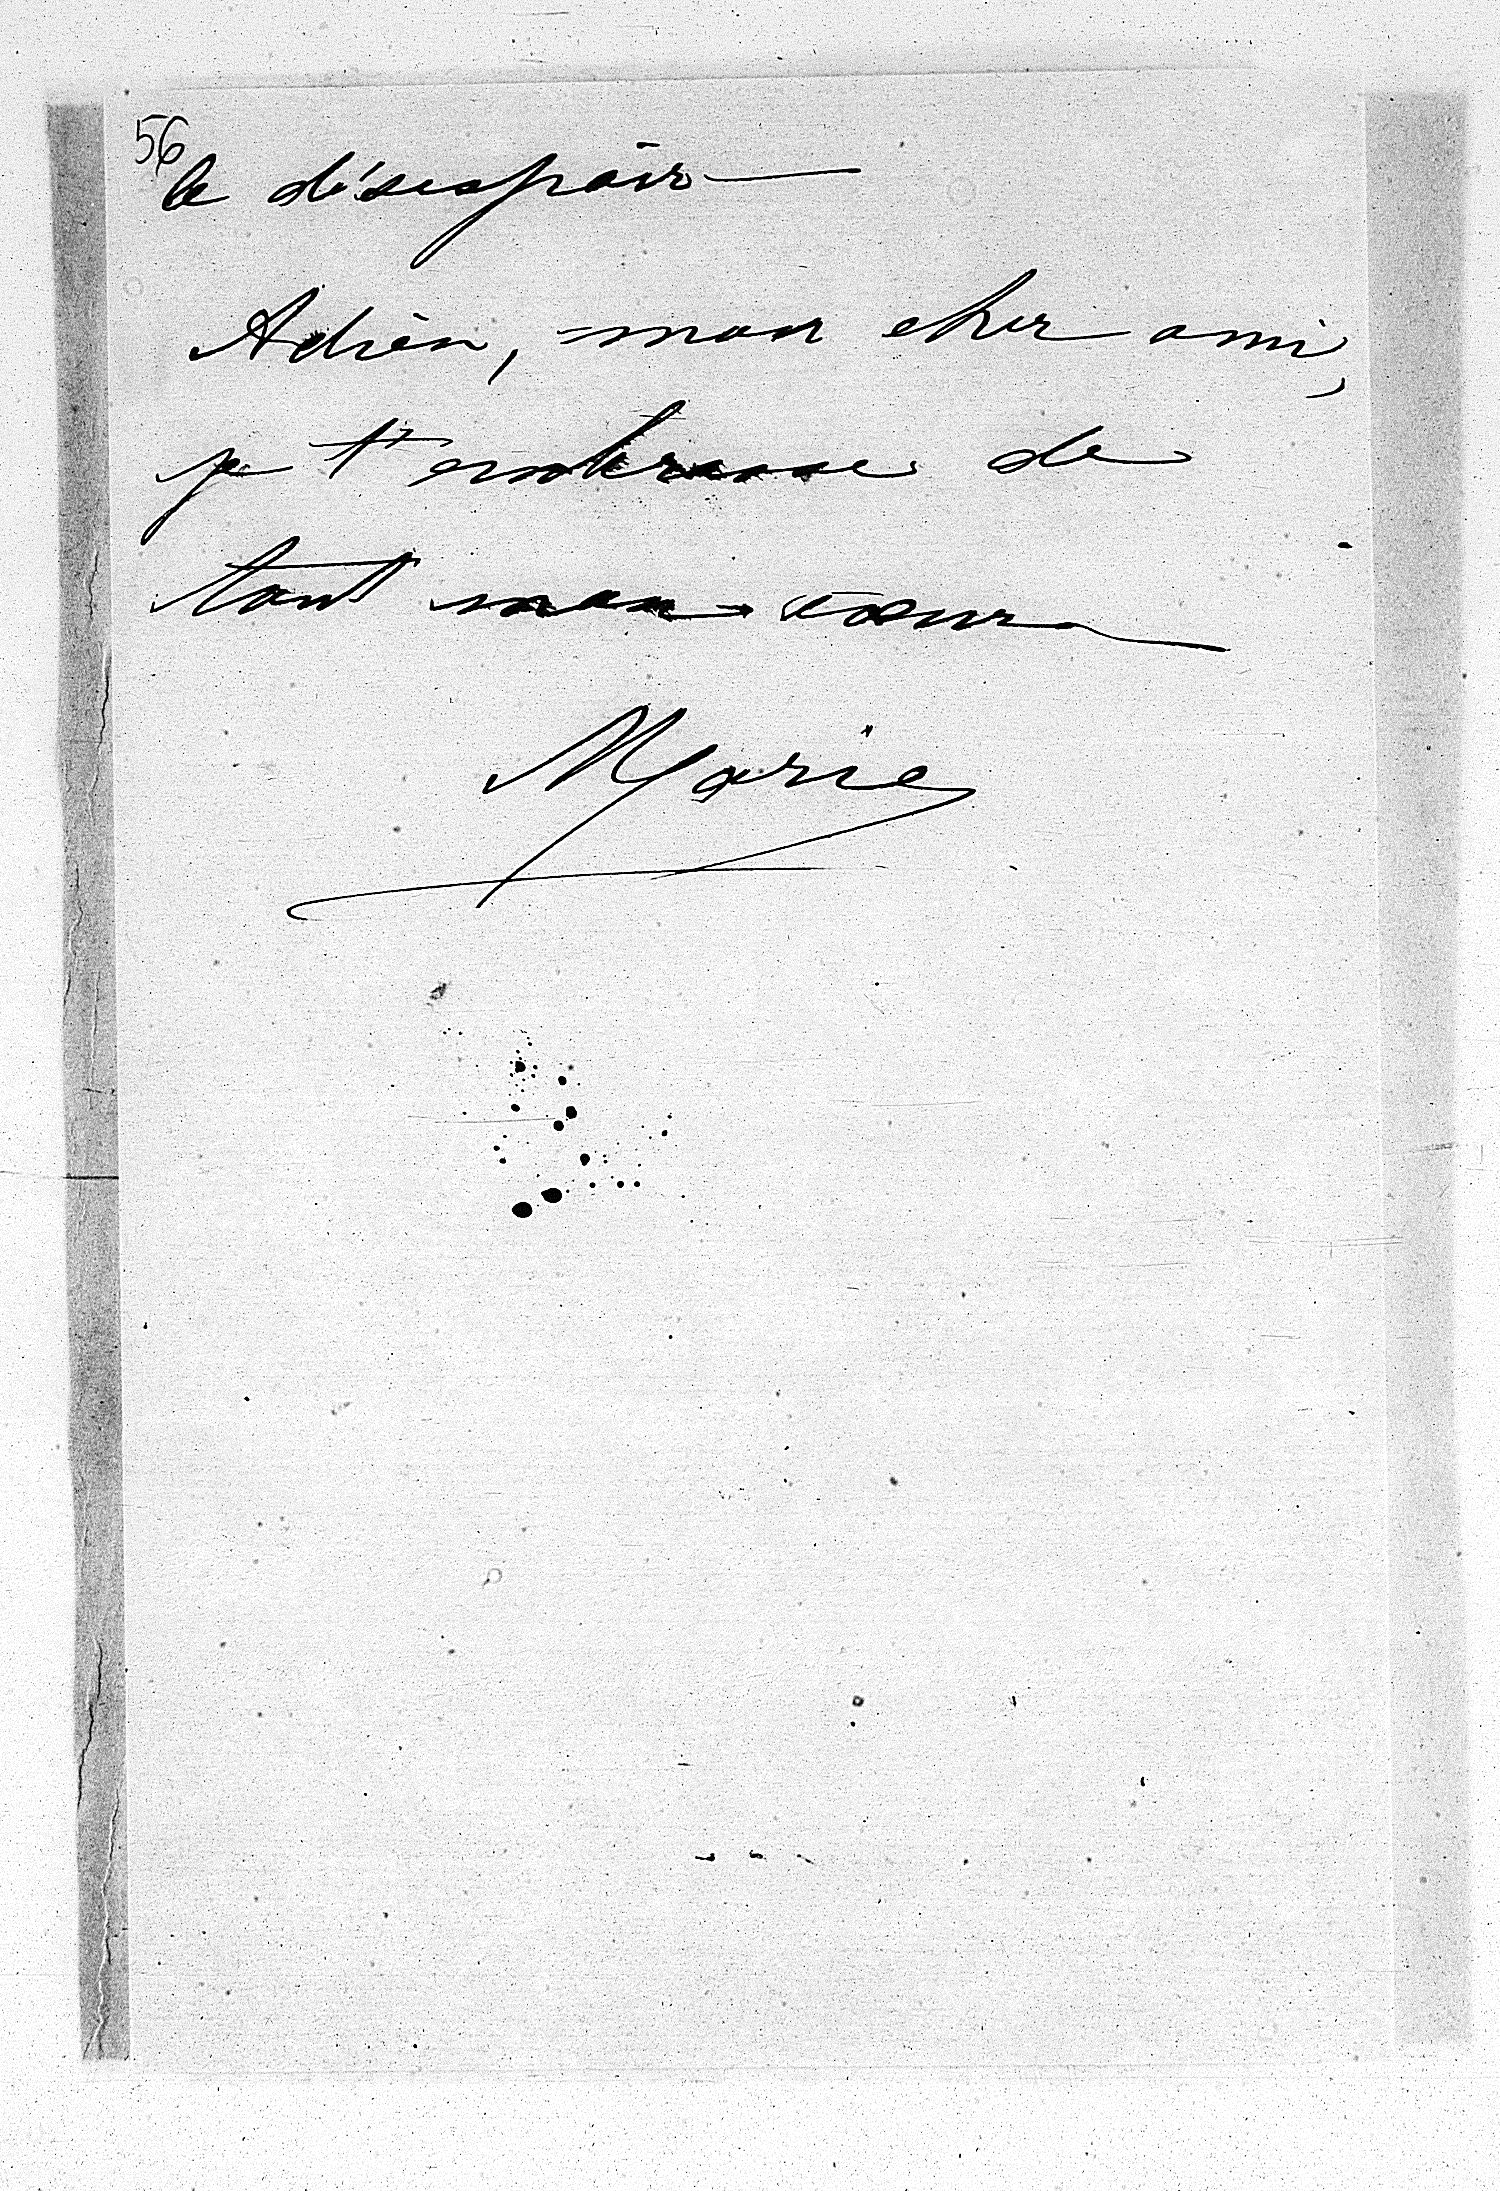 56
le désespoir —
Adrien, mon cher ami,
je t'embrasse de
tout mon cœur
Marie